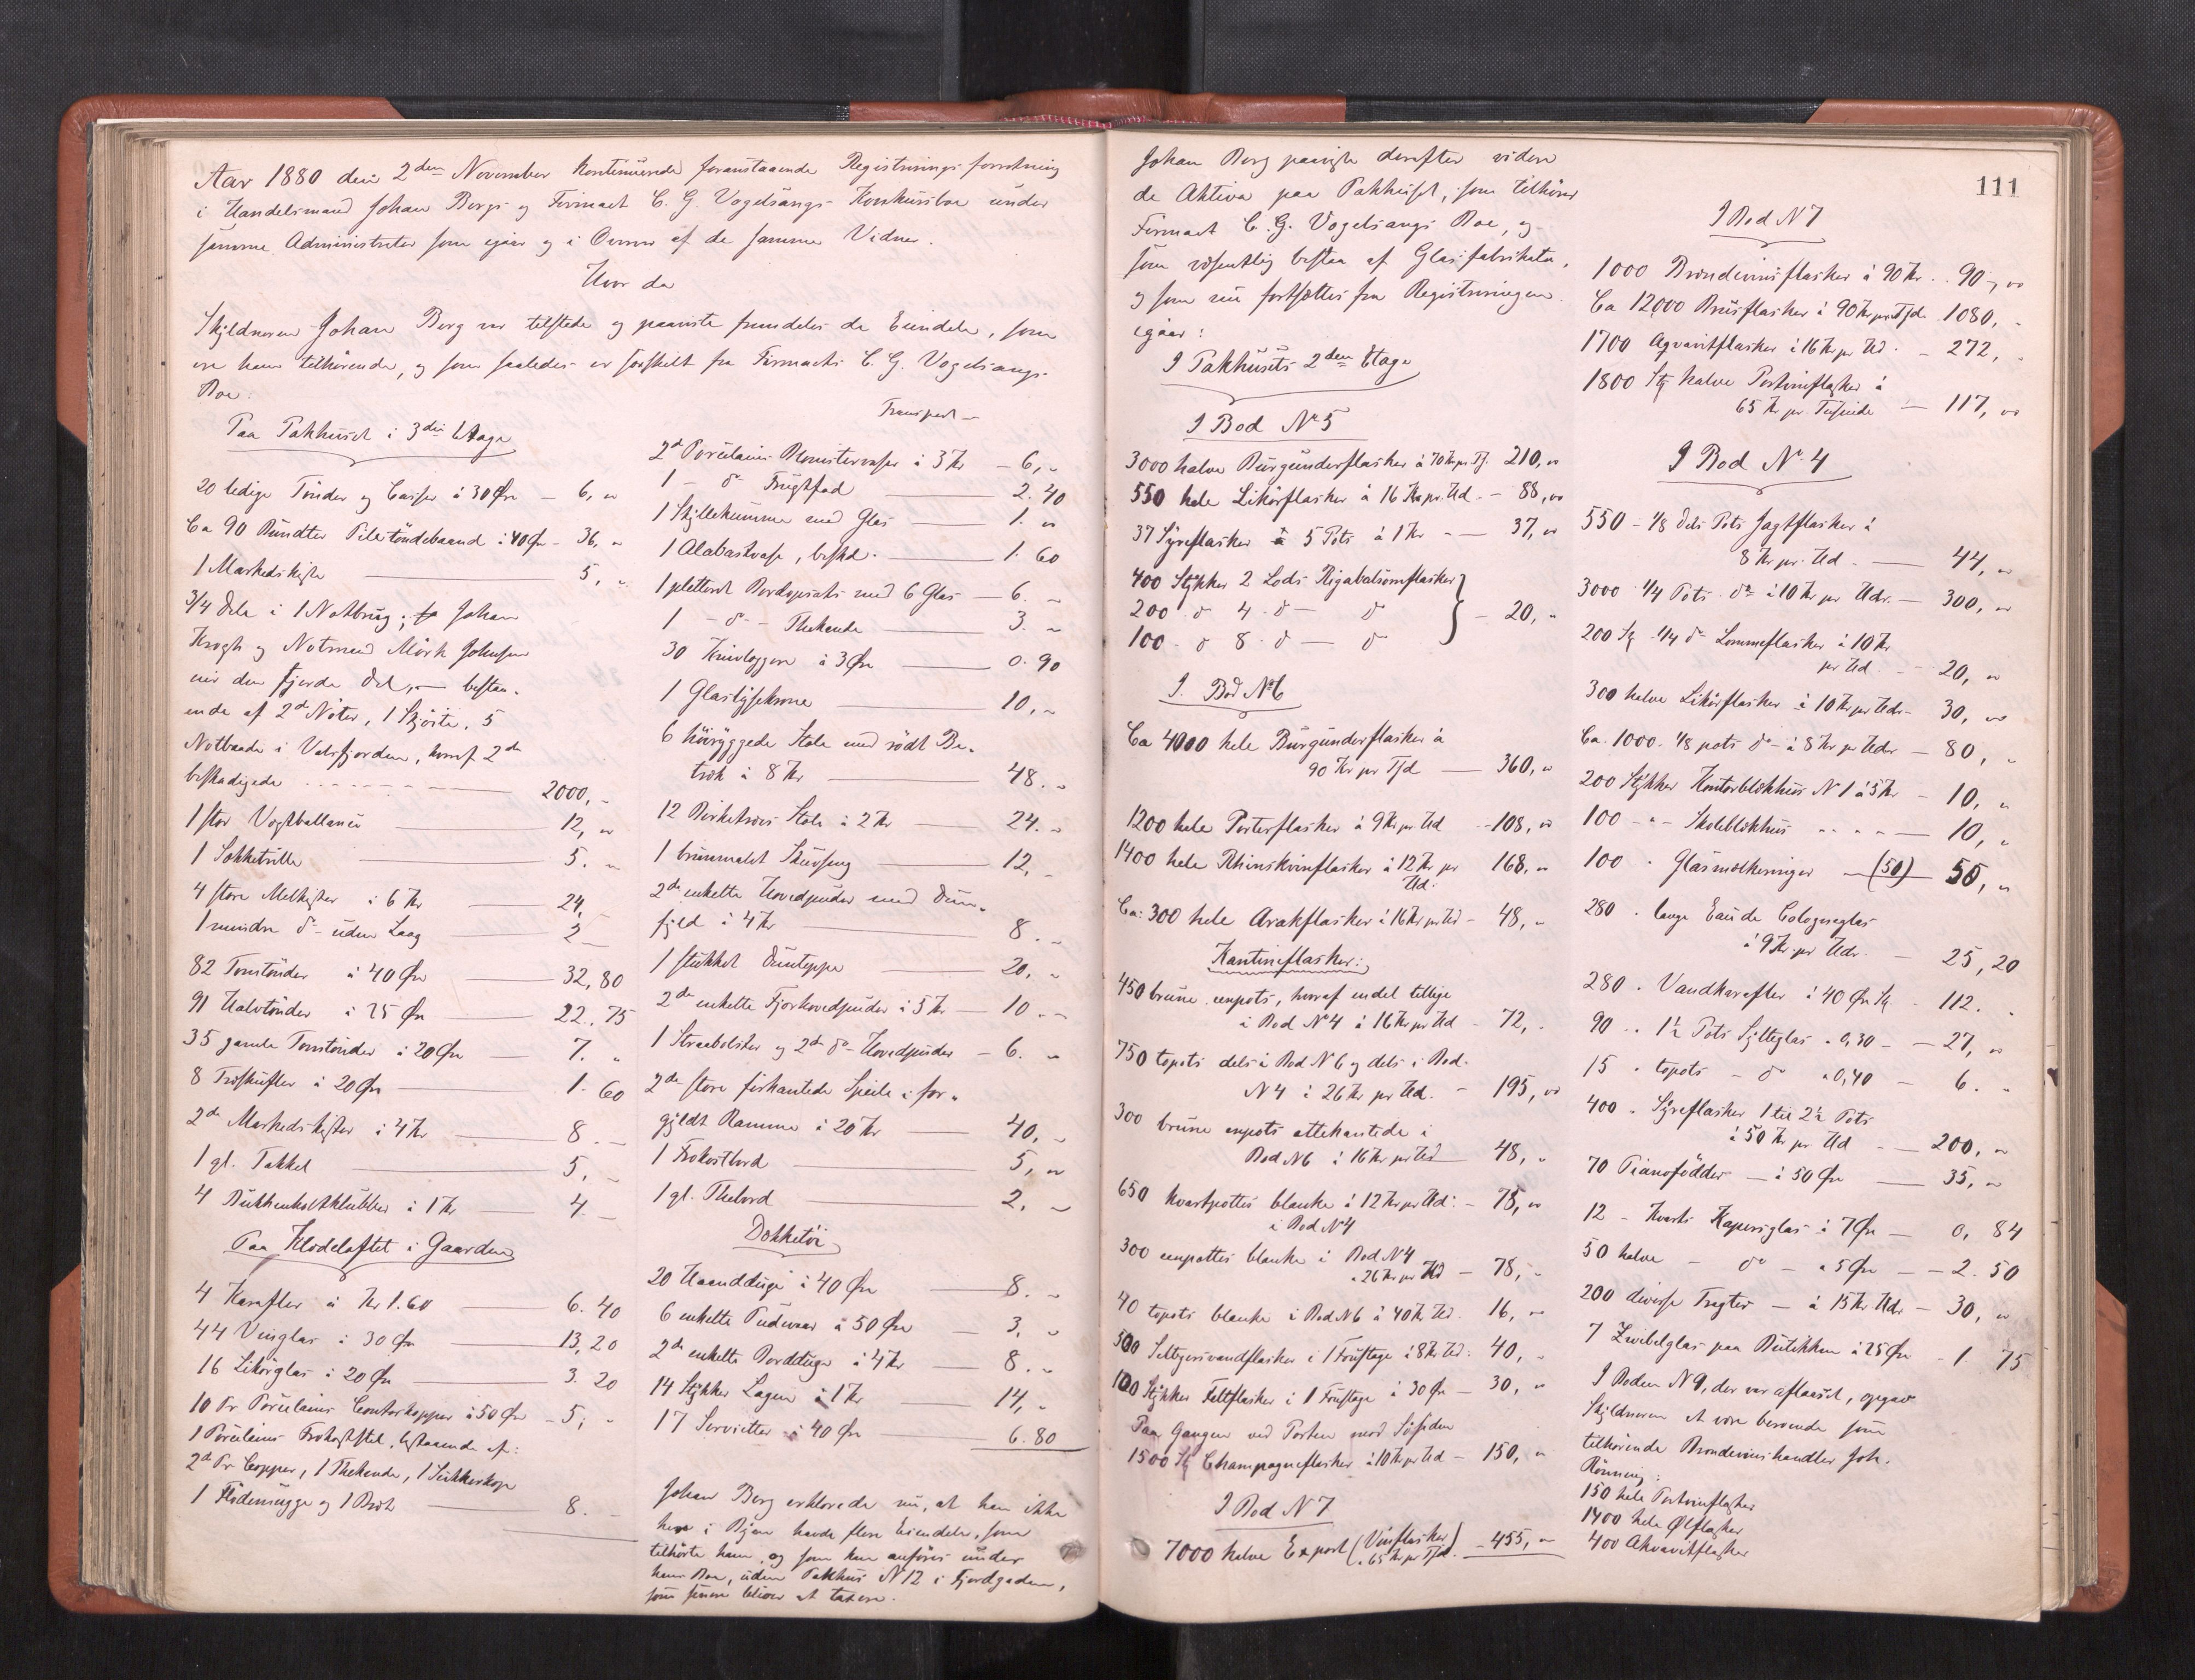 Aar 1880 den 2den November kontinuerede foranstaaende Registrerings-forretning
i Handelsmand Johan Bergs og Firmaet C. G. Vogelsangs Konkursboe under
samme Administrator som igaar og i Overvær af de samme Vidner.
Hvor da
Skyldneren Johan Berg var tilstede og paaviste fremdeles de Eiendele, som
ere ham tilhørende, og som saaledes er forskelt fra Firmaets C. G. Vogelsangs
Boe:
Paa Pakhuset i 3die Etage
20 ledige Tønder og Casser à 30 Øre — 6, "
Ca 90 Bundter Piletøndebaand à 40 Øre — 36, "
1 Markedskiste — 5, "
3/4 Dele i 1 Notbrug; Johan
Krogh og Notmand Mørk Johnsen
eier den fjerde Del, — bestaa-
ende af 2de Nøter, 1 Skjøite, 5
Notbaade i Valsfjorden, hvoraf 2de
beskadigede — 2000, "
1 stor Vægtballance — 12, "
1 Sækketrille — 5. "
4 store Melkister à 6 Kr — 24, "
1 mindre do uden Laag — 2 —
82 Tomtønder à 40 Øre — 32,80
91 Halvtønder à 25 Øre — 22.75
35 gamle Tomtønder à 20 Øre — 7. "
8 Træskufler à 20 Øre — 1.60
2de Markedskister à 4 Kr — 8. —
1 gl. Takkel — 5, "
4 Bukkenholtklubber à 1 Kr — 4 —
Paa Klædeloftet i Gaarden
4 Karafler à Kr 1.60 — 6.40
44 Vinglas à 30 Øre — 13,20
16 Likørglas à 20 Øre — 3.20
10 Pr Porcelains Contorkopper à 50 Øre — 5, "
1 Porcelains Frokoststel, bestaaende af:
2de Pr Copper, 1 Thekande, 1 Sukkerkop
1 Flødemugge og 1 Bræt — 8. —
Transport —
2de Porcelains Blomstervaser à 3 Kr — 6, "
1 — do Frugtfad — 2.40
1 Skyllekumme med Glas — 1. "
1 Alabastvase, beskd. — 1.60
1 pletteret Bordopsats med 6 Glas — 6. "
1 — do — Thekande — 3. "
30 Knivlæggere à 3 Øre — 0.90
1 Glaslysekrone — 10, "
6 høiryggede Stole med rødt Be-
træk à 8 Kr — 48. "
12 Birketræes Stole à 2 Kr — 24. "
1 brunmalet Skuvseng — 12, "
2de enkelte Hovedpuder med Dun-
fyld à 4 Kr — 8. "
1 stukket Dunteppe — 20, "
2de enkelte Fjærhovedpuder à 5 Kr — 10. —
1 Straabolster og 2de do Hovedpuder — 6. "
2de store firkantede Speile i for-
gyldt Ramme à 20 Kr — 40, "
1 Frokostbord — 5, "
1 gl. Thebord — 2, "
Dækketøi
20 Haandduge à 40 Øre — 8. "
6 enkelte Pudevaar à 50 Øre — 3, "
2de enkelte Bordduge à 4 Kr — 8. "
14 Stykker Lagen à 1 Kr — 14, "
17 Servietter à 40 Øre — 6.80
Johan Berg erklærede nu, at han ikke
her i Byen havde flere Eiendele, som
tilhørte ham, og som kan anføres under
hans Boe, uden Pakhus N 12 i Fjordgaden,
som senere bliver at taxere.
111
Johan Berg paaviste derefter videre
de Aktiva paa Pakhuset, som tilhører
Firmaet C. G. Vogelsangs Boe, og
som væsentlig bestaa af Glasfabrikata,
og som nu fortsættes fra Registreringen
igaar:
I Pakhusets 2den Etage
I Bod No 5
3000 halve Burgunderflasker à 70 Kr pr Tsd. 210, "
550 hele Likørflasker à 16 Kr pr. Hd. — 88, "
37 Syreflasker à 5 Pots à 1 Kr — 37, "
400 Stykker 2 Lods Rigabalsomflasker
200 do 4 do — do — 20, "
100 do 8 do — do
I Bod No 6
Ca 4000 hele Burgunderflasker à
90 Kr pr Tsd — 360, "
1200 hele Porterflasker à 9 Kr pr Hd — 108, "
1400 hele Rhinskvinflasker à 12 Kr pr 168, "
Hd.
Ca: 300 hele Arakflasker à 16 Kr pr Hd — 48, "
Kantineflasker:
450 brune eenpots, hvoraf endel tillige
i Bod No 4 à 16 Kr pr Hd — 72, "
750 topots dels i Bod N 6 og dels i Bod
N 4 à 26 Kr pr Hd. — 195, "
300 brune enpots ottekantede i
Bod N 6 à 16 Kr pr Hd — 48, "
650 kvartpottes blanke à 12 Kr pr Hd. — 78, "
i Bod N 4
300 eenpottes blanke i Bod N 4
à 26 Kr pr Hd — 78, "
40 topots blanke i Bod N 6 à 40 Kr Hd. 16, "
500 Seltersvandflasker i 1 Fustage à 8 Kr Hd. 40, "
100 Stykker Feltflasker i 1 Fustage à 30 Øre — 30, "
Paa Gangen ved Porten mod Søsiden
1500 St Champagneflasker à 10 Kr pr Hd — 150, "
I Bod N 7
7000 halve Export (Vinflasker) à 65 Kr pr Tsd. — 455, "
I Bod N 7
1000 Brændevinsflasker à 90 Kr. 90, "
Ca 12,000 Brusflasker à 90 Kr pr Tsd. 1080, "
1700 Aqvavitflasker à 16 Kr pr Hd. — 272, "
1800 St halve Portvinsflasker à
65 Kr pr. Tusinde — 117, "
I Bod No 4
550 — 1/8 Dels Pots Jagtflasker à
8 Kr pr. Hd. — 44, "
3000 1/4 Pots do à 10 Kr pr Hdr. — 300, "
200 St 1/4 do Lommeflasker à 10 Kr
pr Hd. — 20, "
300 halve Likørflasker à 10 Kr pr Hdr — 30, "
Ca. 1000 1/8 pots do — à 8 Kr pr Hdr — 80, "
200 Stykker Kontorblækhus N 1 à 5 Kr — 10, "
100 — " — Skoleblækhus — 10, "
100 " Glasmælkeringer — (50) — 50, "
280 " lange Eau de Cologneglas
à 9 Kr pr Hdr. — 25,20
280 " Vandkarafler à 40 Øre St. 112. "
90 " 1 1/2 Pots Sylteglas à 0,30 — 27, "
15 " topots — do à 0,40 — 6. "
400 " Syreflasker 1 til 2 1/2 Pots
à 50 Kr pr Hd — 200, "
70 Pianofødder — à 50 Øre — 35, "
12 — Kvarts Kapersglas à 7 Øre — 0,84
50 halve — do — à 5 Øre — 2.50
200 diverse Tragter — à 15 Kr Hdr — 30, "
7 Zwibelglas paa Butikken à 25 Øre — 1 75
I Boden N 9, der var aflaaset, opgav
Skyldneren at være beroende som
tilhørende Brændevinshandler Joh.
Rønning:
150 hele Portvinflasker
1400 hele Ølflasker
400 Akvavitflasker